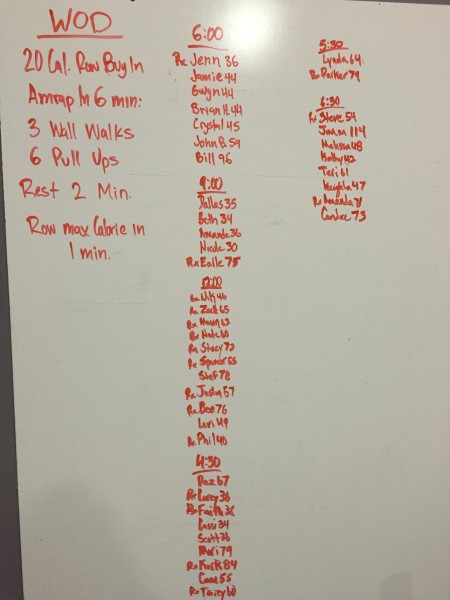 WOD
20 Cal. Row Buy In
Amrap In 6 min:
3 Wall Walks
6 Pull Ups
Rest 2 Min.
Row max Calorie in
1 min.
6:00
Rx Jenn 36
Jamie 44
Gwyn 44
Brian H. 44
Crystal 45
John B. 59
Bill 96
9:00
Dallas 35
Beth 34
Amanda 36
Nicole 30
Rx Earle 75
12:00
Rx 46
Rx Zach 65
Rx 63
Rx Nate 60
Rx Stacy 72
Rx Spencer 55
Stef 78
Rx Justin 57
Rx Ben 76
Lori 49
Rx Phil 40
4:30
Daz 67
Rx Corey 36
Rx Faith 36
Cassi 34
Scott 36
Meri 79
Rx Kurk 84
55
Rx 60
5:30
Lynda 64
Rx Parker 79
6:30
Rx Steve 54
114
Melissa 48
Kathy 42
Teri 61
Keighla 47
Rx Amanda 71
Candice 73